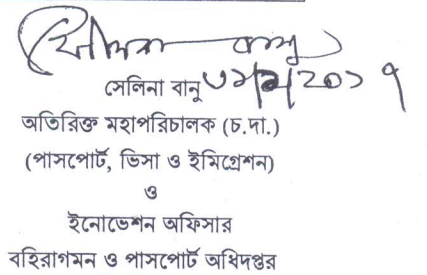 সেলিনা বানু
অতিরিক্ত মহাপরিচালক (চ.দা.)
(পাসপোর্ট, ভিসা ও ইমিগ্রেশন)
ও
ইনোভেশন অফিসার
বহিরাগমন ও পাসপোর্ট অধিদপ্তর